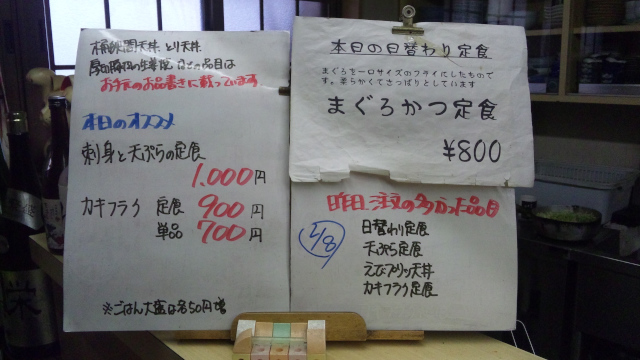 とり天丼
は
お手元のお品書きに載っています
本日のオススメ
刺身と天ぷらの定食
1,000円
カキフライ 定食 900円
単品 700円
※ごはん大盛は各50円増
本日の日替わり定食
まぐろを一口サイズのフライにしたもので
す。柔らかくてさっぱりとしています
まぐろかつ定食
¥800
昨日、注文の多かった品目
2/8
日替わり定食
天ぷら定食
えびプリッ天丼
カキフライ定食
栄